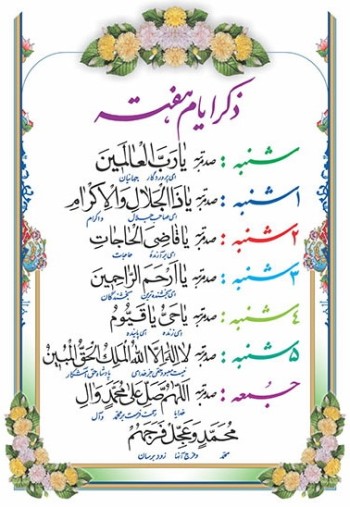 ذکر ایام هفته
شنبه : صد مرتبه یا رَبَّ العالَمین
ای پروردگار جهانیان
۱شنبه : صد مرتبه یا ذَا الجَلالِ وَالاِکرامِ
ای صاحب جلال واکرام
۲شنبه : صد مرتبه یا قاضِیَ الحاجاتِ
ای برآورنده حاجات
۳شنبه : صد مرتبه یا اَرحَمَ الرّاحِمینَ
ای بخشنده‌ترین بخشندگان
۴شنبه : صد مرتبه یا حَیُّ یا قَیُّومُ
ای زنده ای پاینده
۵شنبه : صد مرتبه لا اِلهَ اِلَّا اللهُ المَلِکُ الحَقُّ المُبینُ
نیست معبودی جز خدای پادشاه حق آشکار
جمعه : صد مرتبه اَللّهُمَّ صَلِّ عَلی مُحَمَّدٍ وَالِ
خدایا رحمت فرست بر محمد وآل
مُحَمَّدٍ وَ عَجِّل فَرَجَهُم
محمد و فرج آنها زود برسان